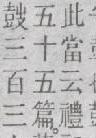 此當云禮
五十五篇。
鼓三百三